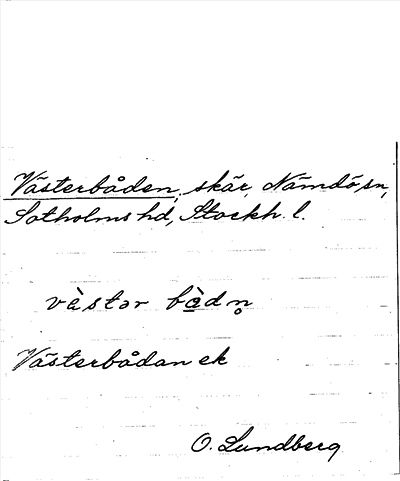 Västerbåden, skär, Nämdö sn,
Sotholms hd, Stockh. l.
vàstər bà̱dn̥
Västerbådan ek
O. Lundberg